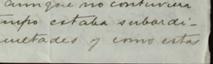 aunque no contuviera
mpo estaba subordi-
ultades y como estas